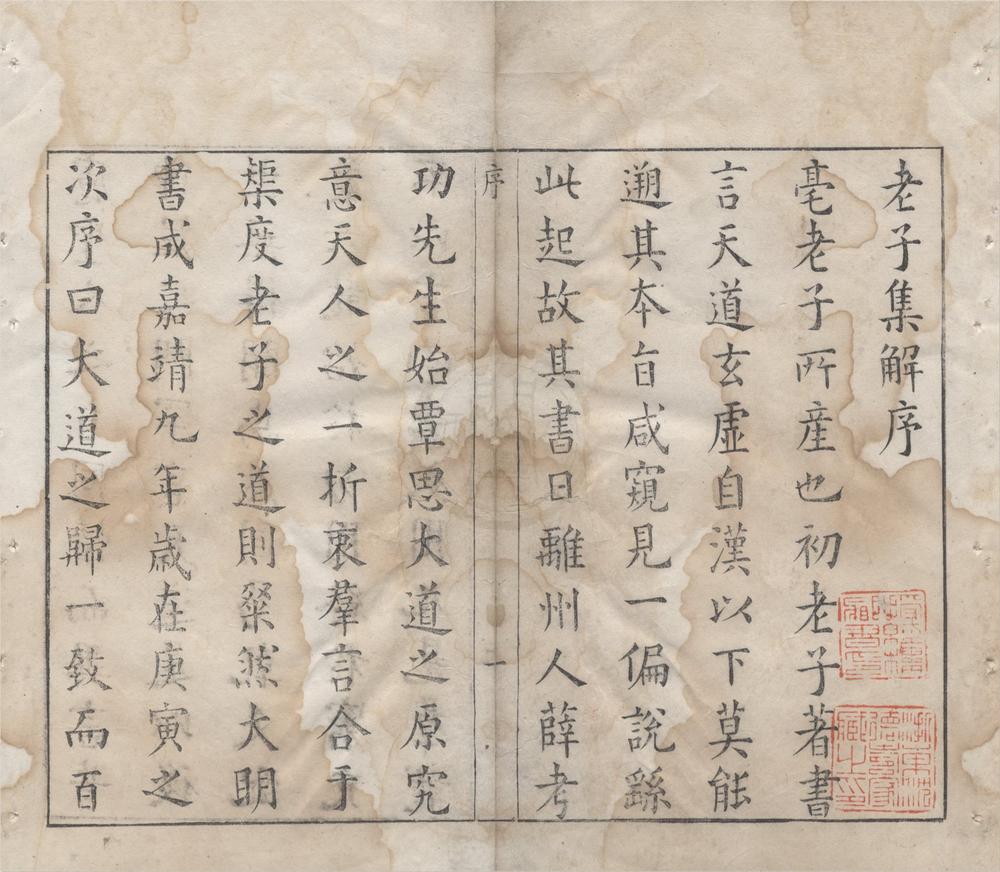 老子集解序
亳老子所產也初老子著書
言天道玄虛自漢以下莫能
遡其本旨咸窺見一偏說繇
此起故其書日離州人薛考
序
一
功先生始覃思大道之原究
意天人之一折衷羣言合于
榘度老子之道則粲然大明
書成嘉靖九年歲在庚寅之
次序曰大道之歸一致而百